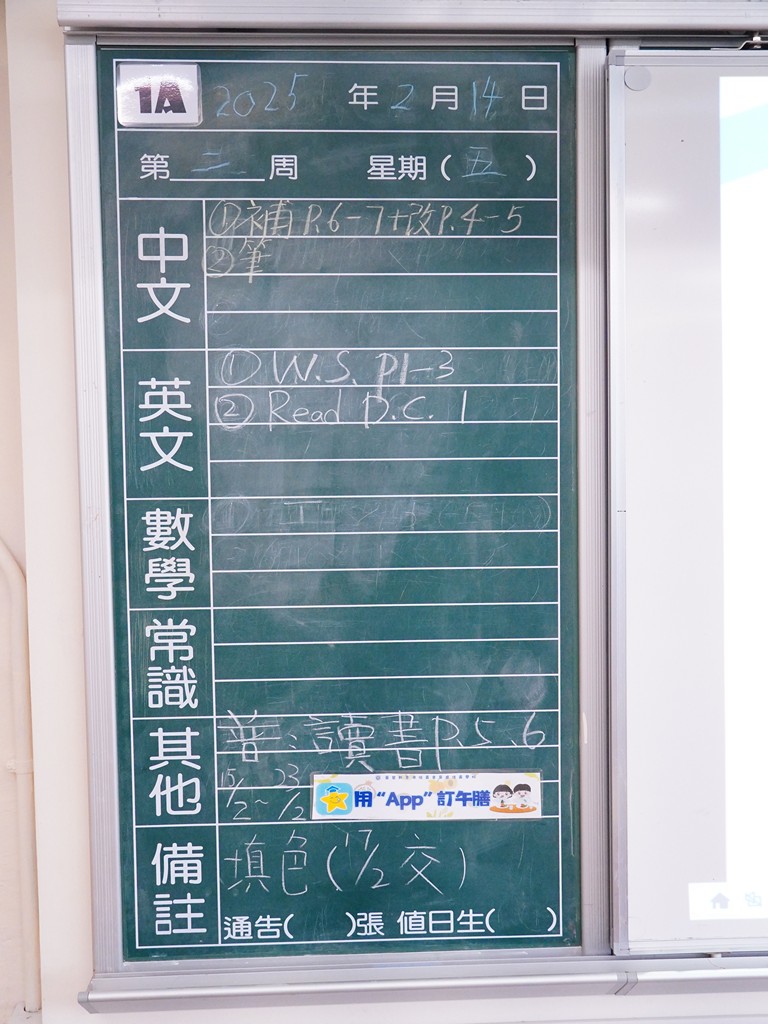 1A 2025 年 2 月 14 日
第 二 周 星期 ( 五 )
中文
① 補 P.6-7+改P.4-5
② 筆
英文
① W.S. P1-3
② Read D.C. 1
數學
常識
其他
普：讀書P.5、6
15/2 ~ 23/2
用 “App” 訂午膳
備註
填色 (17/2 交)
通告( )張 值日生( )